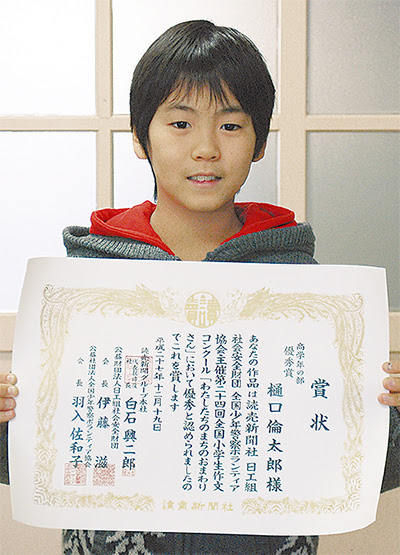 賞状
高学年の部
優秀賞
樋口倫太郎様
あなたの作品は読売新聞社 日工組
社会安全財団 全国少年警察ボランティア
協会主催第二十四回全国小学生作文
コンクール「わたしたちのまちのおまわり
さん」において優秀と認められましたの
でこれを賞します
平成二十七年十二月十九日
読売新聞グループ本社
代表取締役
社長
白石興二郎
公益財団法人日工組社会安全財団
会長
伊藤滋
公益社団法人全国少年警察ボランティア協会
会長
羽入佐和子
讀賣新聞社